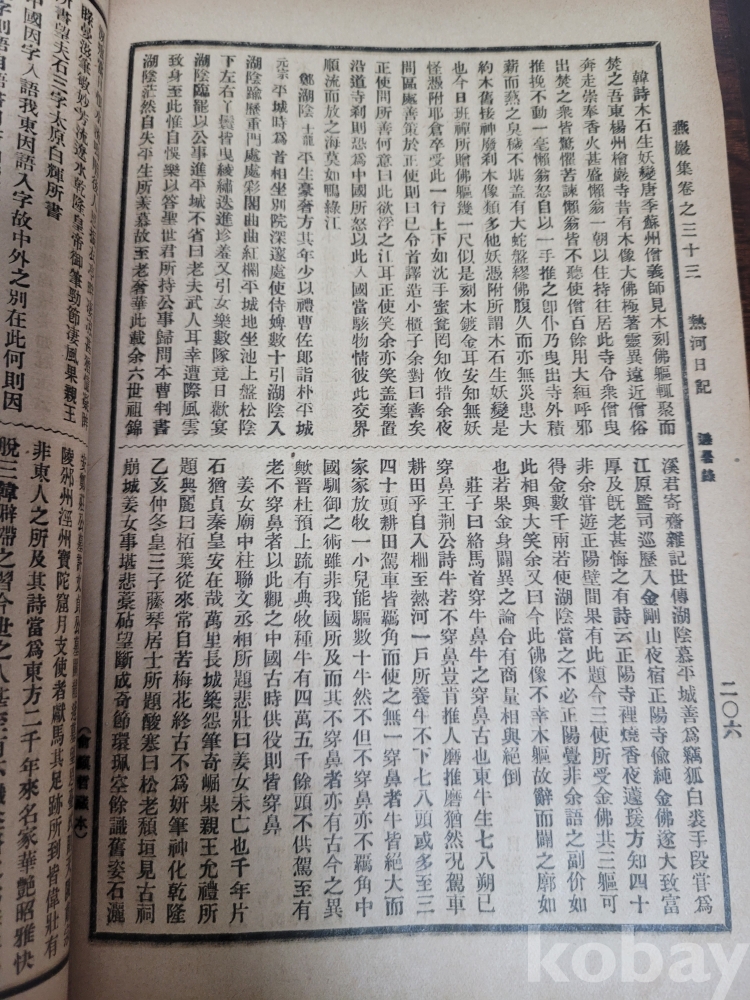 燕巖集卷之三十三 熱河日記 避暑錄 二〇六
韓詩木石生妖變唐季蘇州僧義師見木刻佛軀輒聚而
焚之吾東楊州檜巖寺昔有木像大佛極著靈異遠近僧俗
奔走崇奉香火甚盛懶翁一朝以住持往居此寺令衆僧曳
出焚之衆皆驚懼苦諫懶翁皆不聽使僧百餘用大絙呼邪
推挽不動一毫懶翁怒自以一手推之卽仆乃曳出寺外積
薪而爇之臭穢不堪盖有大蛇盤繆佛腹久而亦無災患大
約木舊接神廢刹木像類多他妖憑附所謂木石生妖變是
也今日班禪所贈佛軀幾一尺似是刻木鍍金耳安知無妖
怪憑附耶倉卒受此一行上下如沈手蜜瓮罔知攸措余夜
問區處善策於正使則曰已令首譯造小櫃子余對曰善矣
正使問所善何意曰此欲浮之江耳正使笑余亦笑盖棄置
沿道寺刹則恐爲中國所怒以此入國當駭物情彼此交界
順流而放之海莫如鴨綠江
鄭湖陰士龍平生豪奢方其年少以禮曹佐郎詣朴平城
元宗平城時爲首相坐別院深邃處使侍婢數十引湖陰入
湖陰踰歷重門處處彩閣曲曲紅欄平城地坐池上盤松陰
下左右丫鬟皆曳綾繡迭進珍羞又引女樂數隊竟日歡宴
湖陰臨罷以公事進平城不省曰老夫武人耳幸遭際風雲
致身至此惟自娛樂以答聖世君所持公事歸問本曹判書
湖陰茫然自失平生所羨慕故至老奢華此載余六世祖錦
溪君寄齋雜記世傳湖陰慕平城善爲竊狐白裘手段甞爲
江原監司巡歷入金剛山夜宿正陽寺偸純金佛遂大致富
厚及旣老甚悔之有詩云正陽寺裡燒香夜蘧瑗方知四十
非余甞遊正陽壁間果有此題今三使所受金佛共三軀可
得金數千兩若使湖陰當之不必正陽覺非余語之副价如
此相與大笑余又曰今此佛像不幸木軀故辭而闢之廓如
也若果金身闢異之論合有商量相與絕倒
莊子曰絡馬首穿牛鼻牛之穿鼻古也東牛生七八朔已
穿鼻王荆公詩牛若不穿鼻豈肯推人磨推磨猶然况駕車
耕田乎自入柵至熱河一戶所養牛不下七八頭或多至三
四十頭耕田駕車皆羈角而使之無一穿鼻者牛皆絕大而
家家放牧一小兒能驅數十牛然不但不穿鼻亦不羈角中
國馴御之術雖非我國所及而其不穿鼻者亦有古今之異
歟晋杜預上疏有典牧種牛有四萬五千餘頭不供駕至有
老不穿鼻者以此觀之中國古時供役則皆穿鼻
姜女廟中柱聯文丞相所題悲壯曰姜女未亡也千年片
石猶貞秦皇安在哉萬里長城築怨筆奇崛果親王允禮所
題典麗曰栢葉從來常自苦梅花終古不爲妍筆神化乾隆
乙亥仲冬皇三子藤琴居士所題酸寒曰松老頹垣見古祠
崩城姜女事堪悲藁砧望斷成奇節環珮空餘識舊姿石灑
所書望夫石三字太原白輝所書